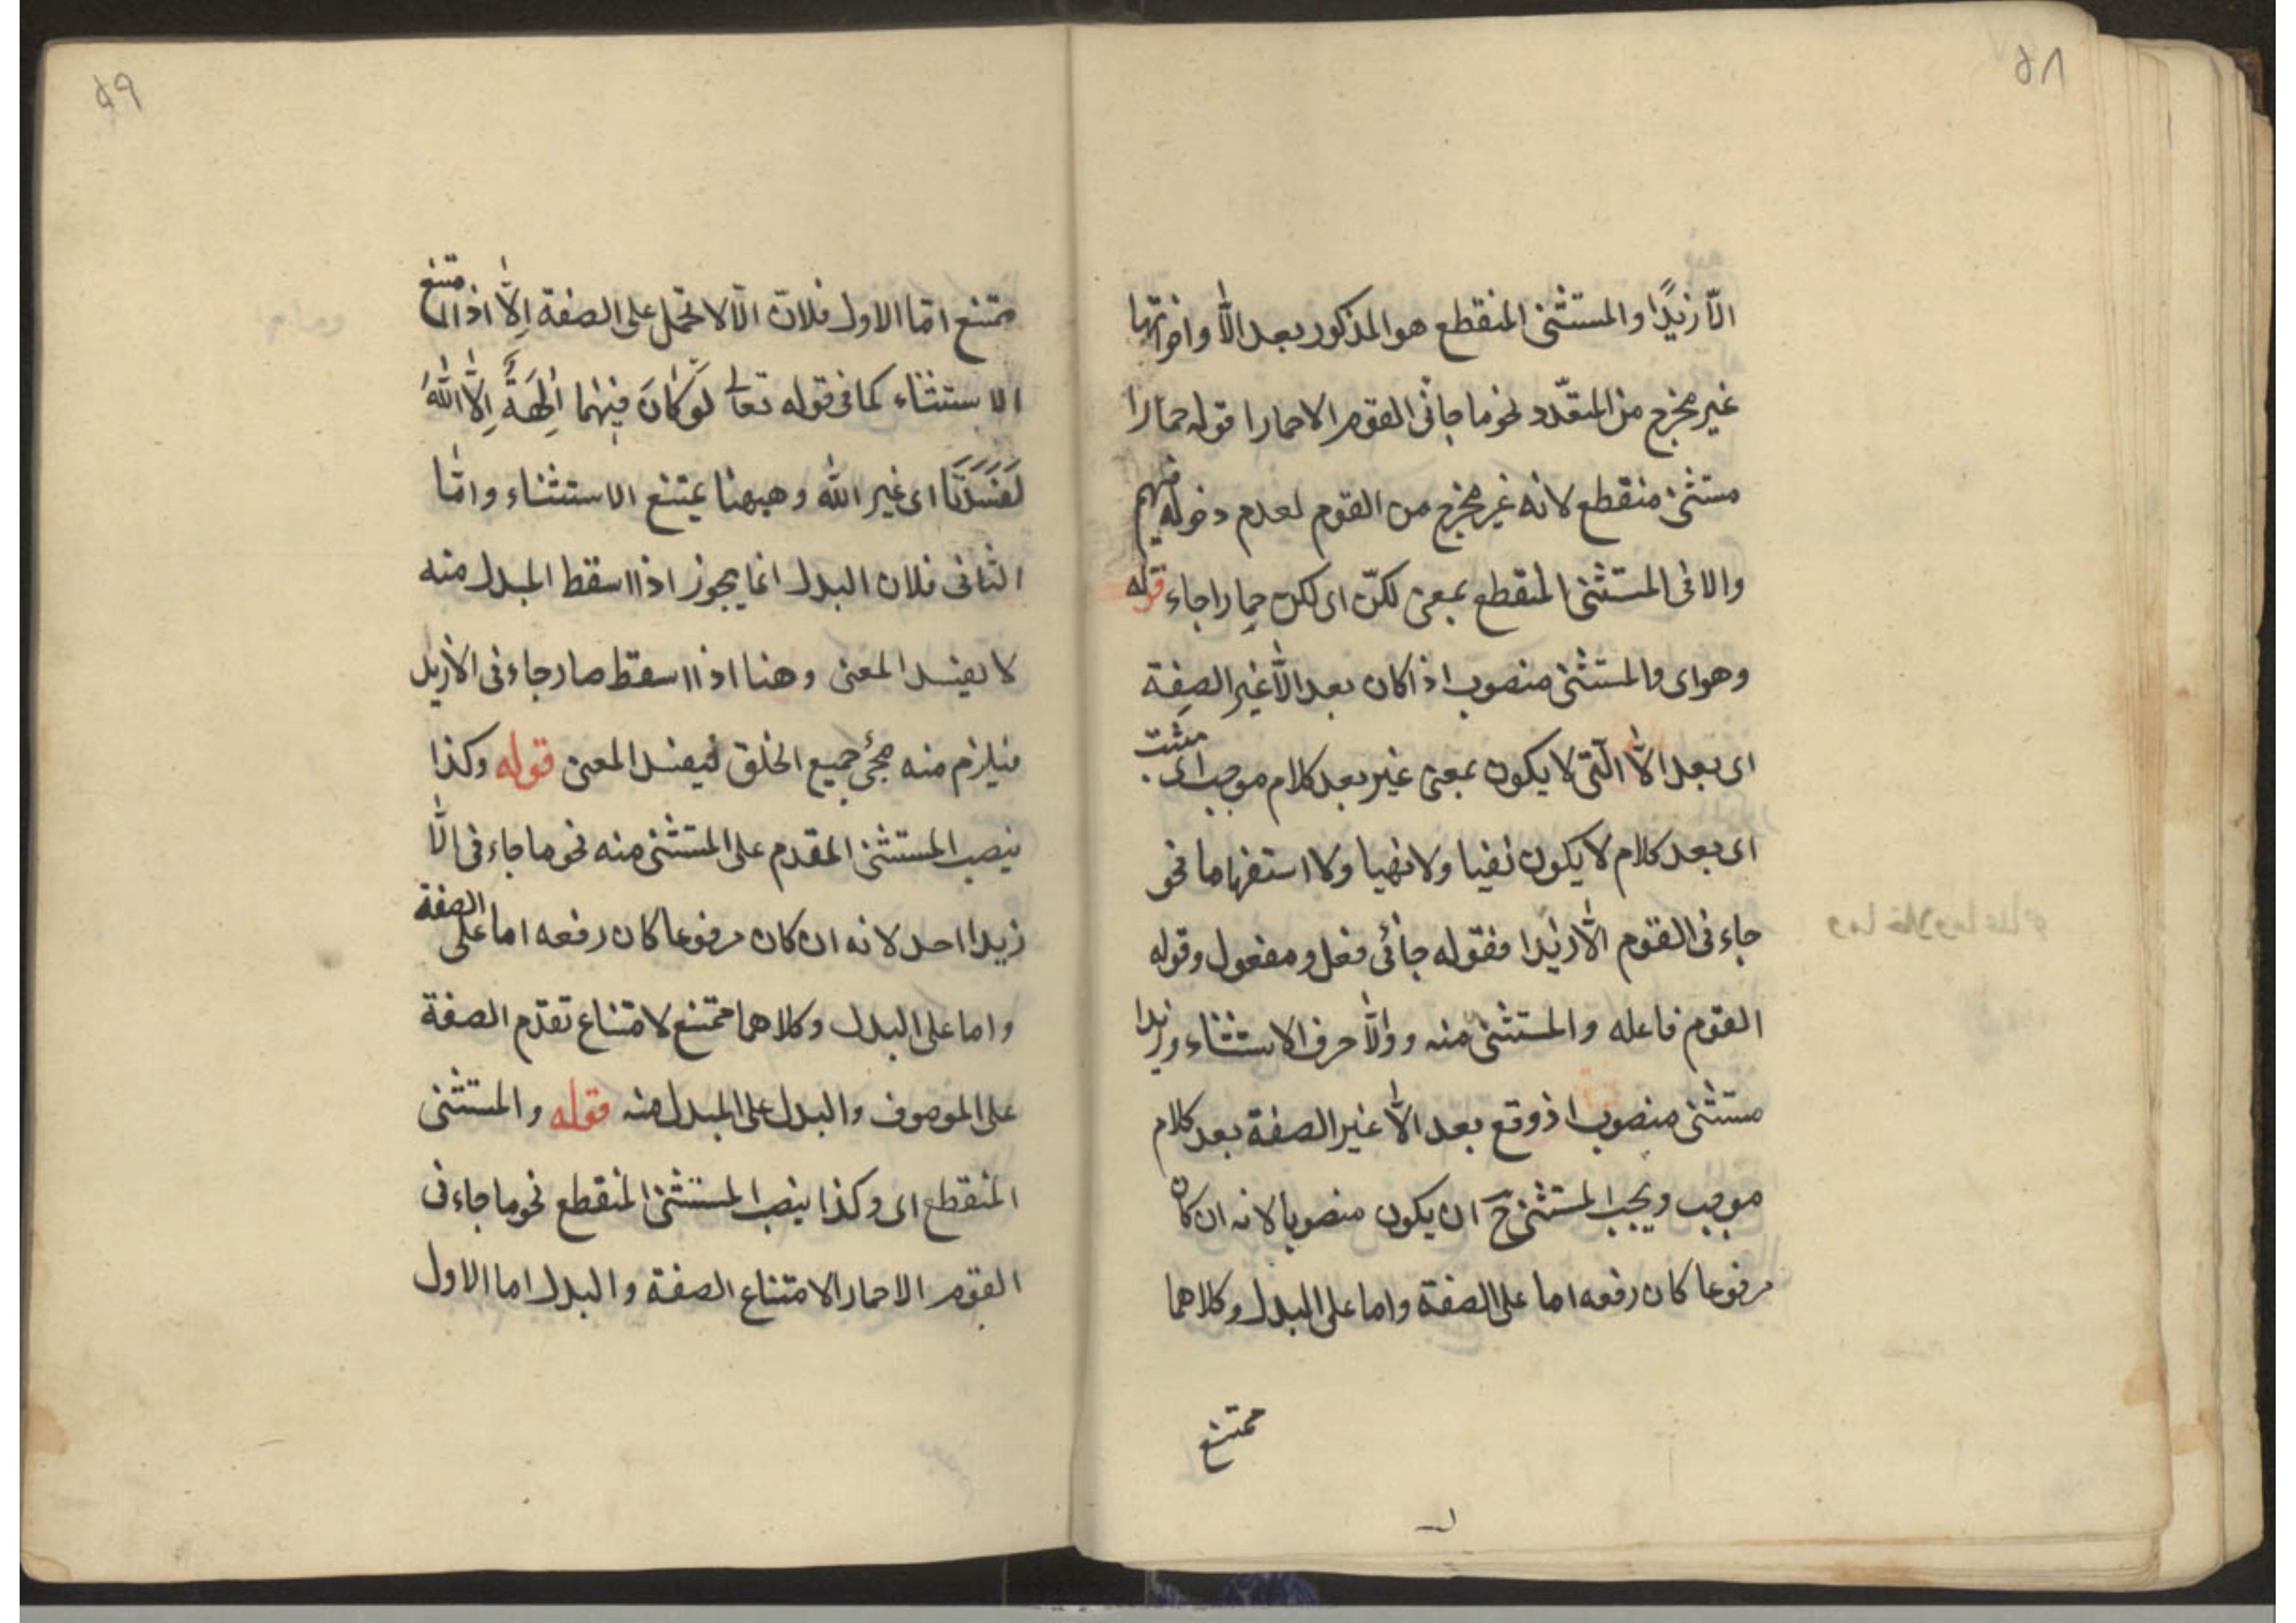 ٥٨
الّا زيدًا والمستثنى المنقطع هو المذكور بعد الّا واخواتها
غير مخرج من المتعّدد نحو ما جانى القوم الا حمارا قوله حمارا
مستثنى منقطع لانه غير مخرج من القوم لعدم دخوله فيهم
والا فى المستثنى المنقطع بمعنى لكنّ اى لكن حمارا جاء قوله
وهو اى والمستثنى منصوب اذا كان بعد الّا غير الصفة
اى بعد الّا الّتى لا يكون بمعنى غير بعد كلام موجب اى مثبت
اى بعد كلام لا يكون نفيا ولا نهيا ولا استفهاما نحو
جاءنى القوم الّا زيدا فقوله جائنى فعل ومفعول وقوله
القوم فاعله والمستثنى منه و والّا حرف الاستثناء وزيدا
مستثنى منصوب اذ وقع بعد الّا غير الصفة بعد كلام
موجب ويجب المستثنى ح ان يكون منصوبا لانه ان كان
مرفوعا كان رفعه اما على الصفة واما على البدل وكلاهما
ممتنع
٥٩
ممتنع امّا الاول فلانّ الّا لا تحمل على الصفة اِلّا اذا امتنع
الاستثناء كما فى قوله تعالى لَوْ كَانَ فِيْهِمَا اٰلِهَةٌ اِلَّا اللّٰهُ
لَفَسَدَتَا اى غير اللّٰه وهيهنا يمتنع الاستثناء وامّا
الثانى فلان البدل انما يجوز اذا اسقط المبدل منه
لا يفسد المعنى وهنا اذا اسقط صار جاءنى الا زيد
فيلزم منه مجئ جميع الخلق فيفسد المعنى قوله وكذا
ينصب المستثنى المقدم على المستثنى منه نحو ما جاءنى الّا
زيدا احد لانه ان كان مرفوعا كان رفعه اما على الصفة
واما على البدل وكلاهما ممتنع لامتناع تقدّم الصفة
على الموصوف والبدل على المبدل منه قوله والمستثنى
المنقطع اى وكذا ينصب المستثنى المنقطع نحو ما جاءنى
القوم الا حمارا لامتناع الصفة والبدل اما الاول